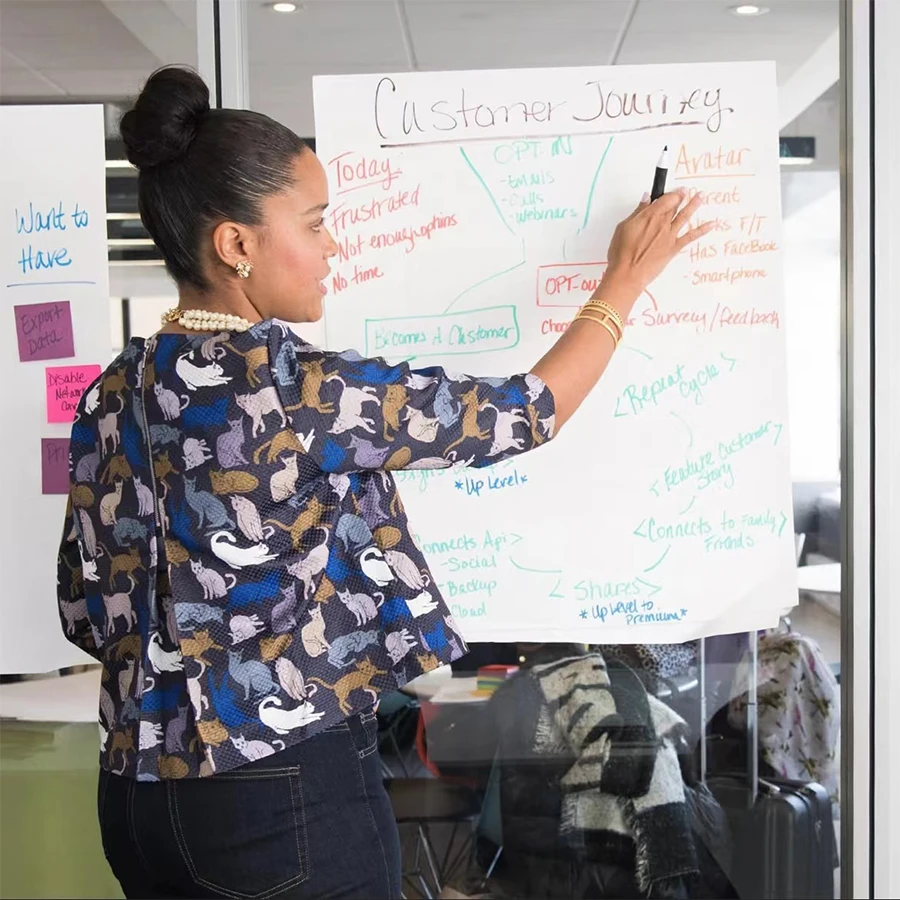 Customer Journey
Want to
Have
Export
Data
Disable
Today
Frustrated
Not enough options
No time
OPT-IN
-Emails
-Calls
-Webinars
Avatar
Has FaceBook
-Smartphone
OPT-out
Survey/feedback
Becomes A Customer
<Repeat
Cycle>
<Feature Customer
Story>
<Connects to Family
Friends>
<Shares>
*Up Level to
Premium*
*Up Level*
Connects Api>
-Social
-Backup
Cloud